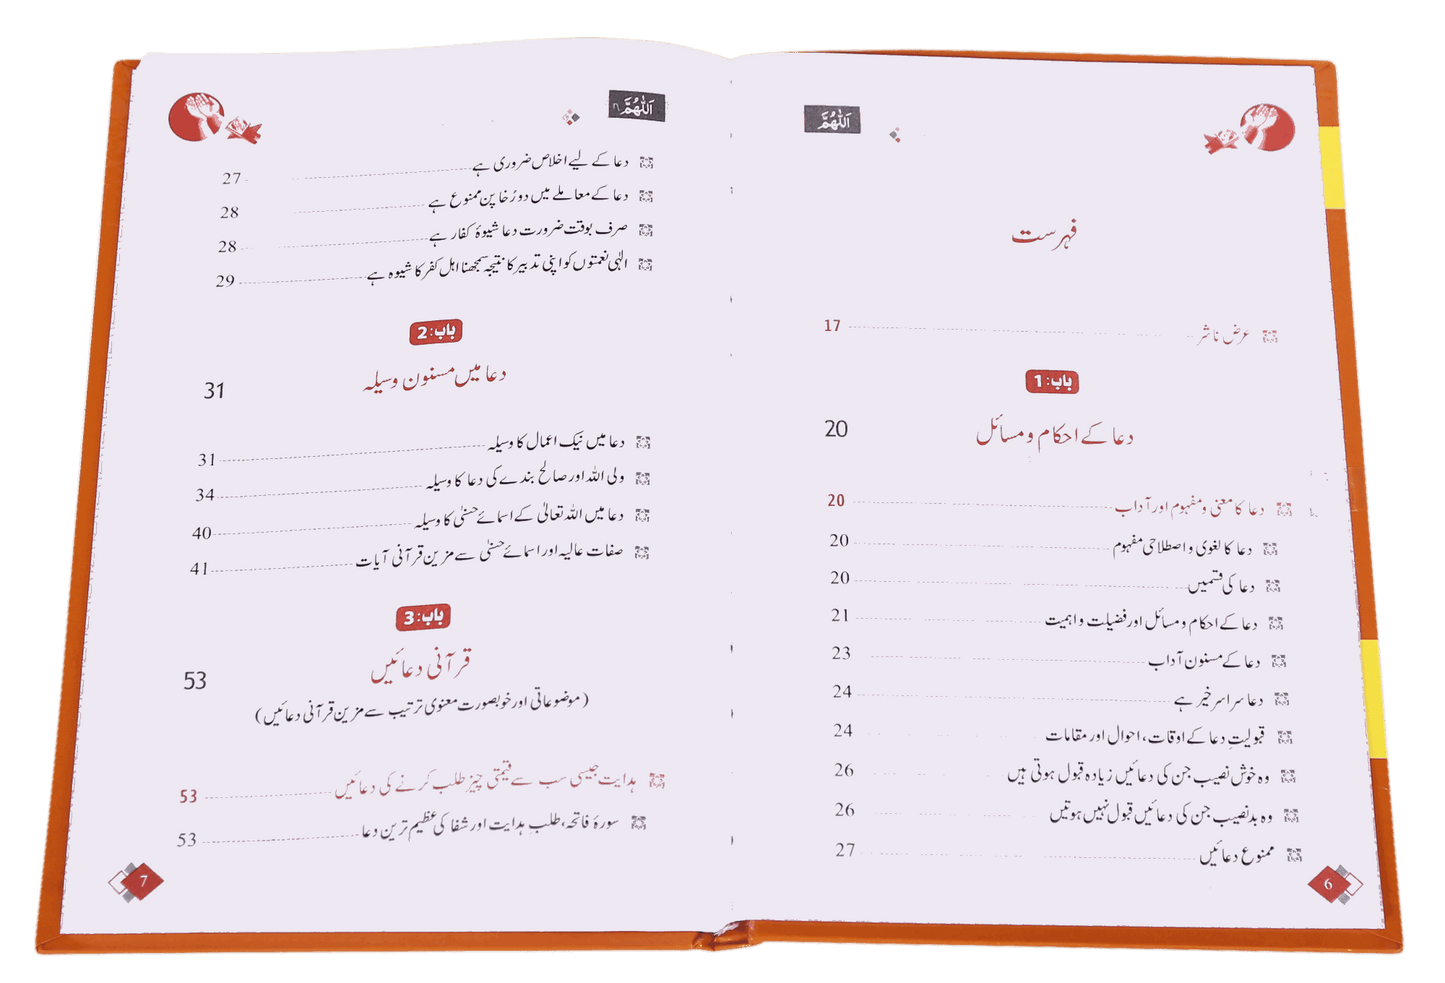 اَللّٰهُمَّ
فہرست
عرض ناشر 17
باب:1
دعا کے احکام و مسائل 20
دعا کا معنی و مفہوم اور آداب 20
دعا کا لغوی و اصطلاحی مفہوم 20
دعا کی قسمیں 20
دعا کے احکام و مسائل اور فضیلت و اہمیت 21
دعا کے مسنون آداب 23
دعا سراسر خیر ہے 24
قبولیتِ دعا کے اوقات، احوال اور مقامات 24
وہ خوش نصیب جن کی دعائیں زیادہ قبول ہوتی ہیں 26
وہ بدنصیب جن کی دعائیں قبول نہیں ہوتیں 26
ممنوع دعائیں 27
6
اَللّٰهُمَّ
دعا کے لیے اخلاص ضروری ہے 27
دعا کے معاملے میں دوڑخا پن ممنوع ہے 28
صرف بوقت ضرورت دعا شیوۂ کفار ہے 28
الٰہی نعمتوں کو اپنی تدبیر کا نتیجہ سمجھنا اہل کفر کا شیوہ ہے 29
باب:2
دعا میں مسنون وسیلہ 31
دعا میں نیک اعمال کا وسیلہ 31
ولی اللہ اور صالح بندے کی دعا کا وسیلہ 34
دعا میں اللہ تعالیٰ کے اسمائے حسنیٰ کا وسیلہ 40
صفات عالیہ اور اسمائے حسنیٰ سے مزین قرآنی آیات 41
باب:3
قرآنی دعائیں 53
(موضوعاتی اور خوبصورت معنوی ترتیب سے مزین قرآنی دعائیں)
ہدایت جیسی سب سے قیمتی چیز طلب کرنے کی دعائیں 53
سورۂ فاتحہ، طلب ہدایت اور شفا کی عظیم ترین دعا 53
7